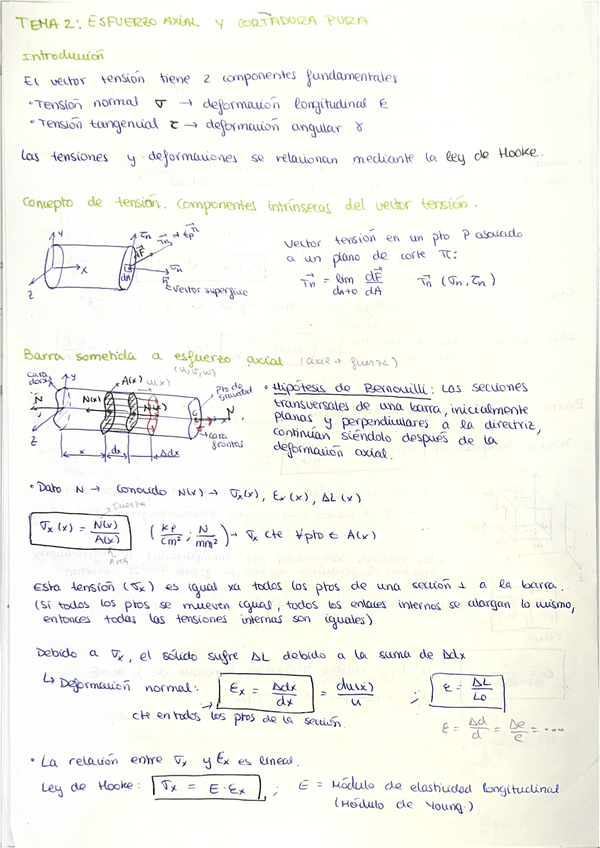 TEMA 2: ESFUERZO AXIAL Y CORTADURA PURA
Introducción
El vector tensión tiene 2 componentes fundamentales
• Tensión normal σ → deformación longitudinal ε
• Tensión tangencial τ → deformación angular γ
Las tensiones y deformaciones se relacionan mediante la ley de Hooke.
Concepto de tensión. Componentes intrínsecas del vector tensión.
Vector tensión en un pto P asociado
a un plano de corte π:
Tn = lim dF/dA Tn (σn, τn)
dA→0
Y
X
Z
τn
dF
σn
n
dA
vector superficie
Barra sometida a esfuerzo axial (axil → fuerza)
(u, v, w)
cara dorsal
Y
N
N(x)
A(x)
u(x)
N(x)
Pto de gravedad
G
N
cara frontal
Z
x
dx
Δdx
• Hipótesis de Bernouilli: Las secciones
transversales de una barra, inicialmente
planas y perpendiculares a la directriz,
continúan siéndolo después de la
deformación axial.
• Dato N → Conocido N(x) → σx(x), εx(x), ΔL(x)
Fuerza
σx(x) = N(x)/A(x) (kp/cm² ; N/mm²) → σx cte ∀pto ∈ A(x)
Área
Esta tensión (σx) es igual xa todos los ptos de una sección ⊥ a la barra.
(Si todos los ptos se mueven igual, todos los enlaces internos se alargan lo mismo,
entonces todas las tensiones internas son iguales)
Debido a σx, el sólido sufre ΔL debido a la suma de Δdx
↳ Deformación normal: εx = Δdx/dx = du(x)/u ; ε = ΔL/L0
cte en todos los ptos de la sección.
ε = Δd/d = Δe/e = ...
• La relación entre σx y εx es lineal.
Ley de Hooke: σx = E · εx ; E = Módulo de elasticidad longitudinal
(Módulo de Young.)